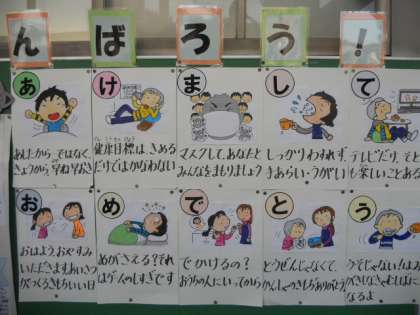 んばろう!
あ
あしたからではなく
きょうから早ね早おき
け
健康目標は、きめる
だけではかなわない
ま
マスクして、あなたと
みんなをまもりましょう
し
しっかりわすれず、
手あらい・うがい
て
テレビだけ、そと
も楽しいことある
お
おはよう、おやすみ
いただきます、あいさつ
がつくるきもちいい日
め
めがさえる?それ
はゲームのしすぎです
で
でかけるの?
おうちの人にいってから
と
とうぜんじゃなくて、
かんしゃのきもちありがとう
う
なるよ